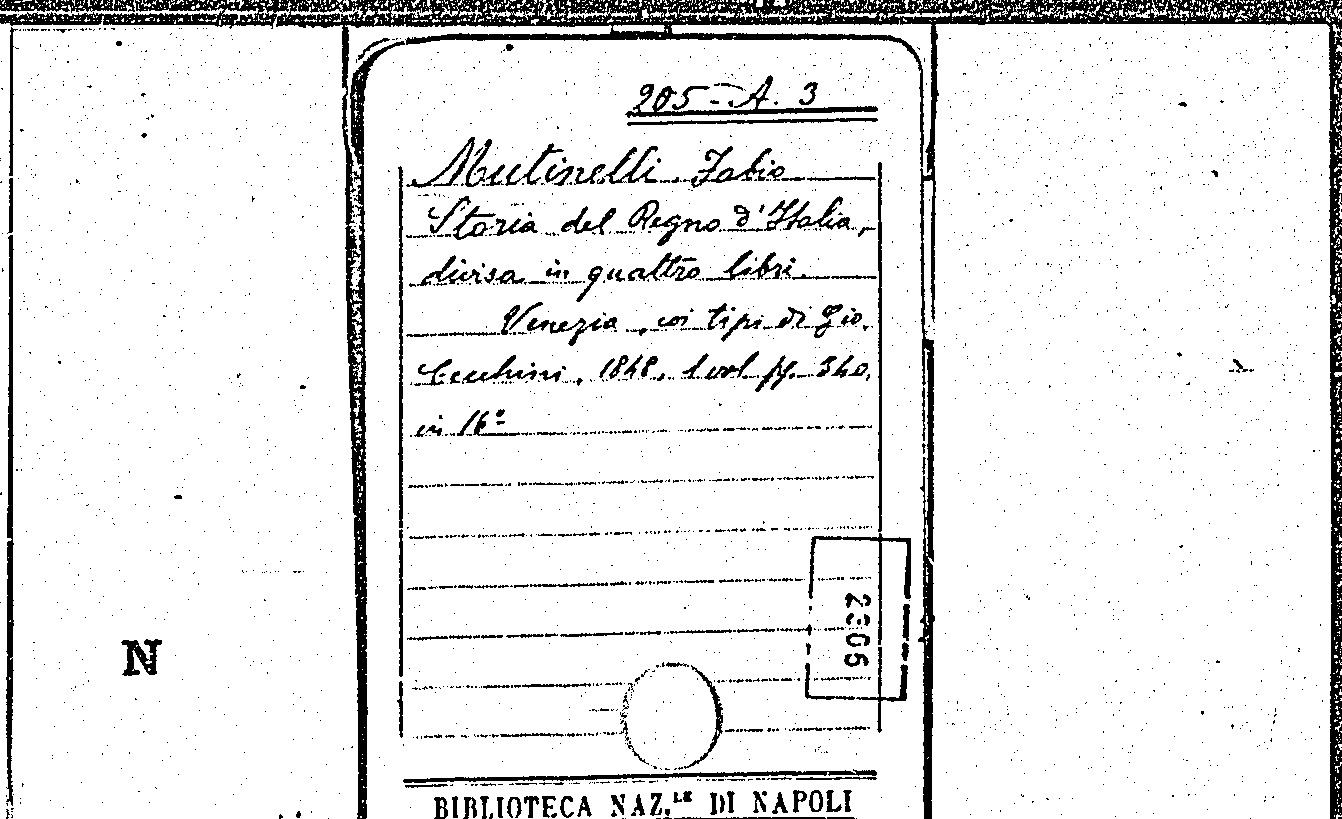 205 - A. 3
Mutinelli, Fabio
Storia del Regno d'Italia,
divisa in quattro libri.
Venezia, coi tipi di Gio.
Cecchini, 1848, 1 vol. pp. 340,
in 16º
2305
N
BIBLIOTECA NAZ.LE DI NAPOLI